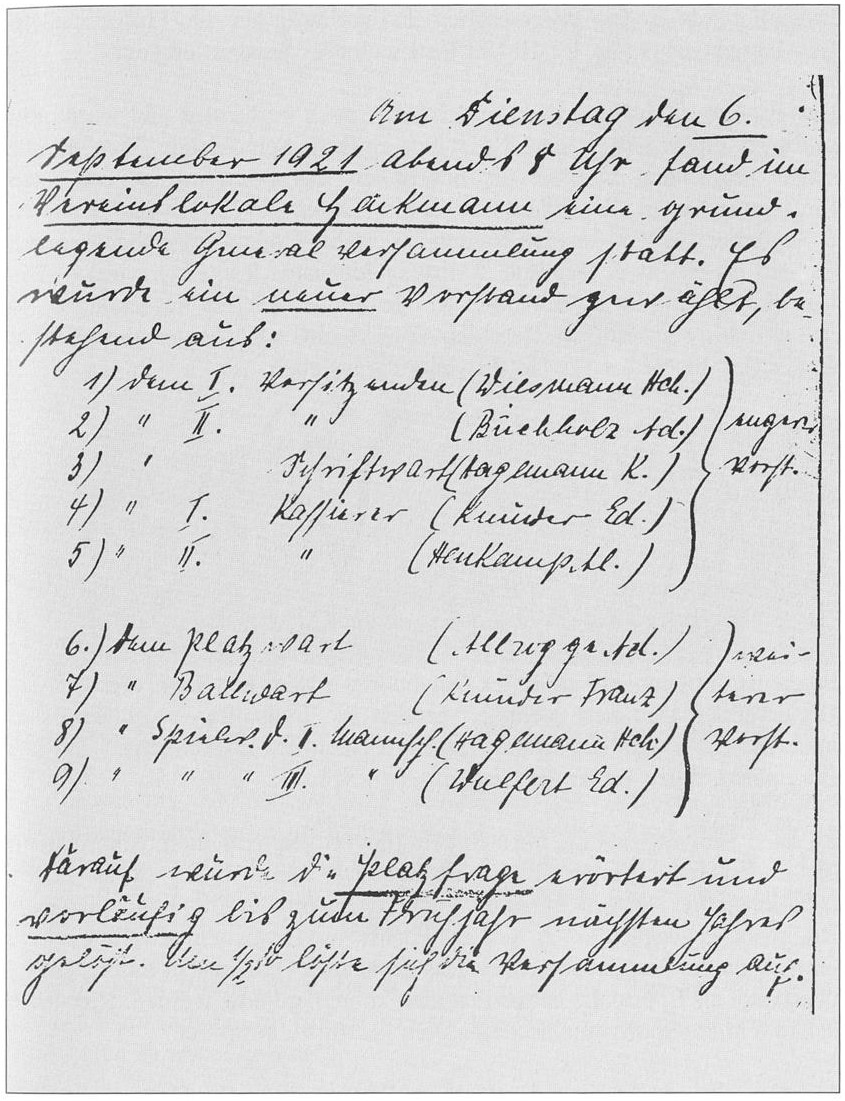 Am Dienstag den 6.
September 1921 abends 8 Uhr fand im
Vereinslokale Hackmann eine grund-
legende Generalversammlung statt. Es
wurde ein neuer Vorstand gewählt, be-
stehend aus:
1) dem I. Vorsitzenden (Wiesmann Hch.)
2) " II. " (Buchholz Ad.) engerer
3) " Schriftwart (Hagemann K.) Vorst.
4) " I. Kassierer (Knüder Ed.)
5) " II. " (Henkamp Al.)
6.) dem Platzwart (Allrogge Ad.) wei-
7) " Ballwart (Knüder Franz) terer
8) " Spielw. d. II. Mannsch. (Hagemann Hch.) Vorst.
9) " " " III. " (Wulfert Ed.)
Darauf wurde die Platzfrage erörtert und
vorläufig bis zum Frühjahr nächsten Jahres
gelöst. löste sich die Versammlung auf.